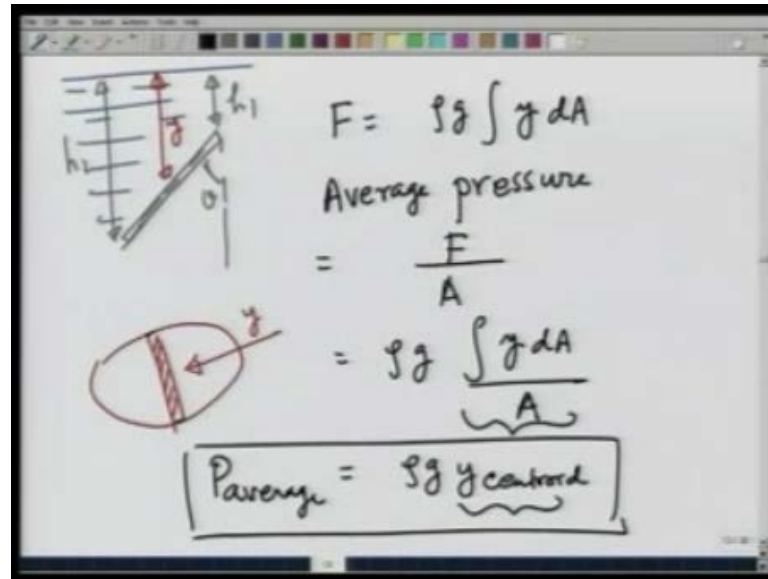 h₁
h₂
y
θ
F = ρg ∫ y dA
Average pressure
= F / A
y
= ρg ∫ y dA / A
Paverage = ρg ycentroid